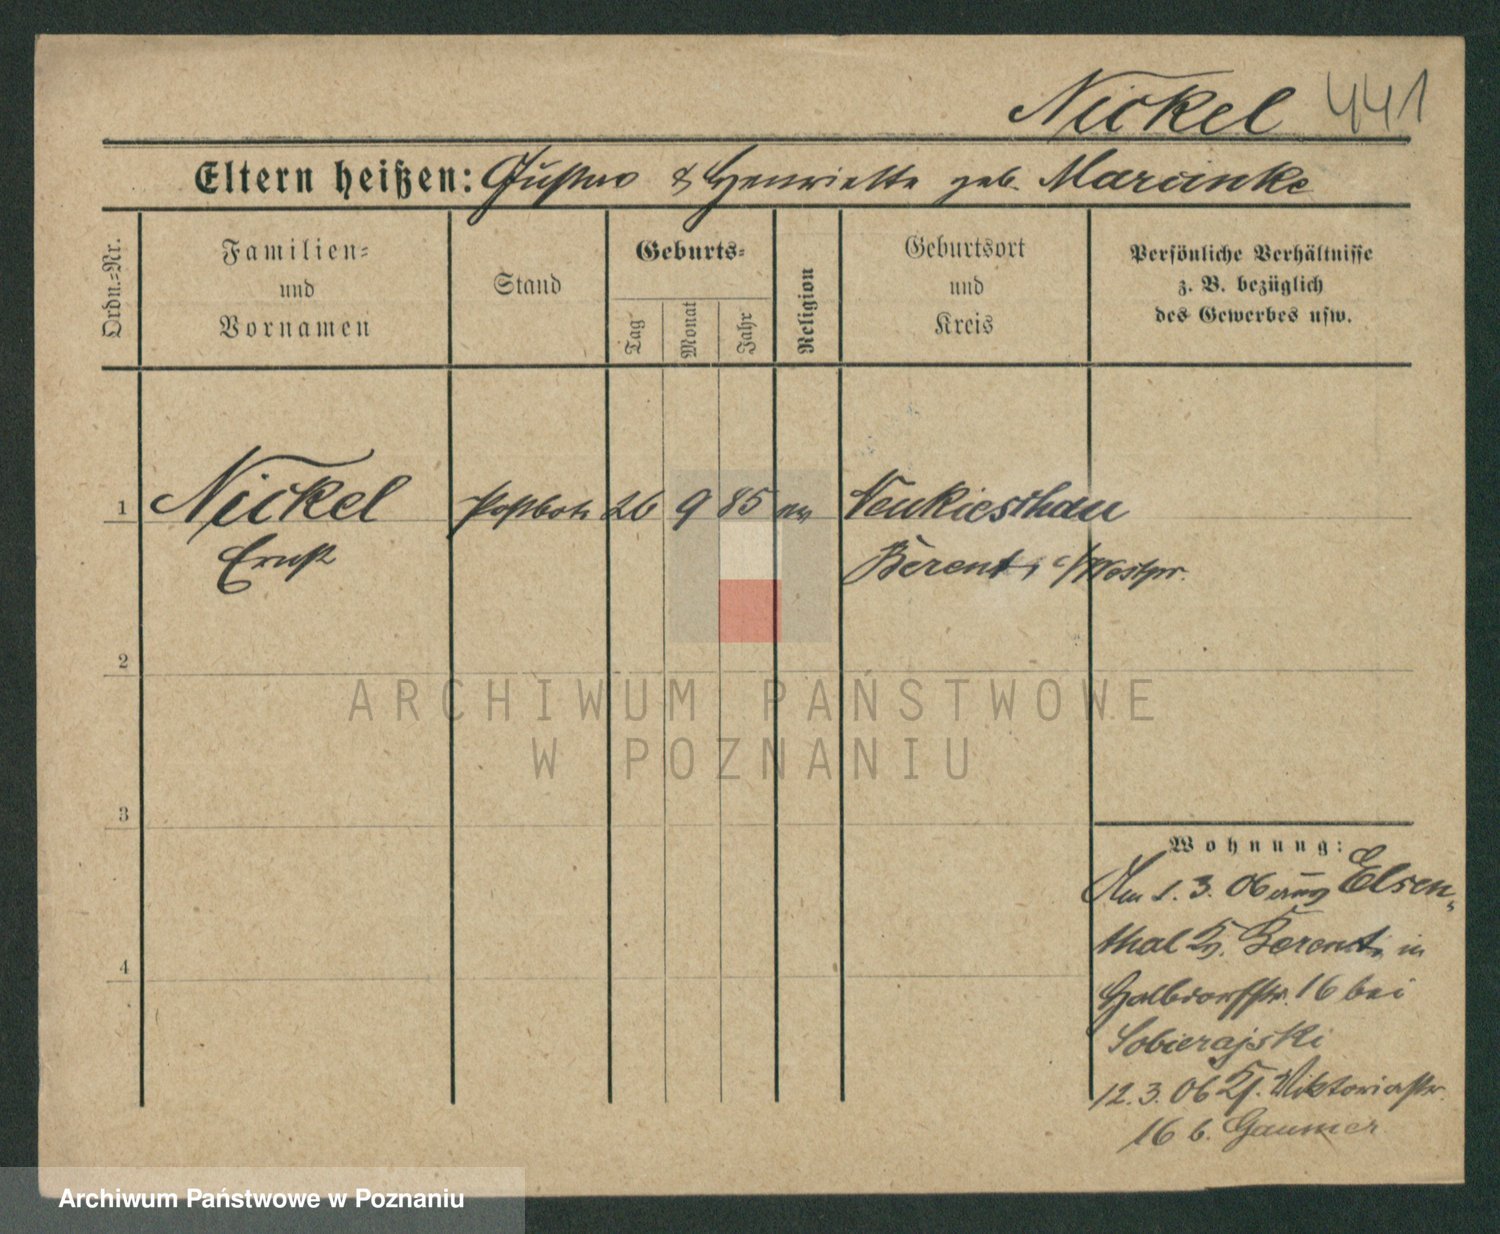 Nickel 441
Eltern heißen: Gustav & Henriette geb. Marunke
Ordn.-Nr.
Familien-
und
Vornamen
Stand
Geburts-
Tag
Monat
Jahr
Religion
Geburtsort
und
Kreis
Persönliche Verhältnisse
z. B. bezüglich
des Gewerbes usw.
1 Nickel Postbote 26 9 85 ev Neukieschau
Ernst Berent, i/Westpr.
2
3
4
Wohnung:
Am 1. 3. 06 aus Elsen-
thal Kr. Berent, in
Halbdorfstr. 16 bei
Sobierajski
12. 3. 06 Viktoriastr.
16 b. Gaumer
ARCHIWUM PAŃSTWOWE
W POZNANIU
Archiwum Państwowe w Poznaniu